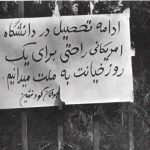 ادامه تحصیل در دانشگاه
امریکائی راحتی برای یک
روز خیانت به ملت میدانیم.